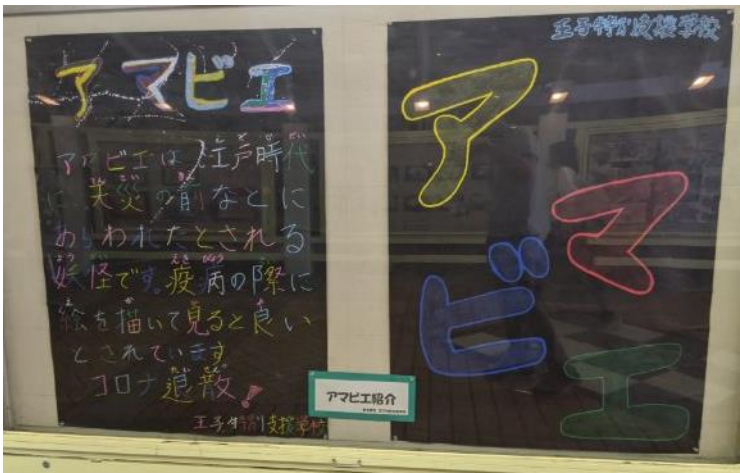 アマビエ
アマビエは江戸時代
に天災の前などに
あらわれたとされる
妖怪です。疫病の際に
絵を描いて見ると良い
とされています
コロナ退散!
王子特別支援学校
アマビエ紹介
王子特別支援学校
アマビエ